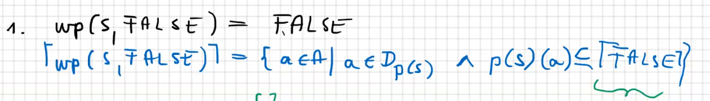 1. wp(S, FALSE) = FALSE
⌈wp(S, FALSE)⌉ = { a ∈ A | a ∈ D_{p(S)} ∧ p(S)(a) ⊆ ⌈FALSE⌉}